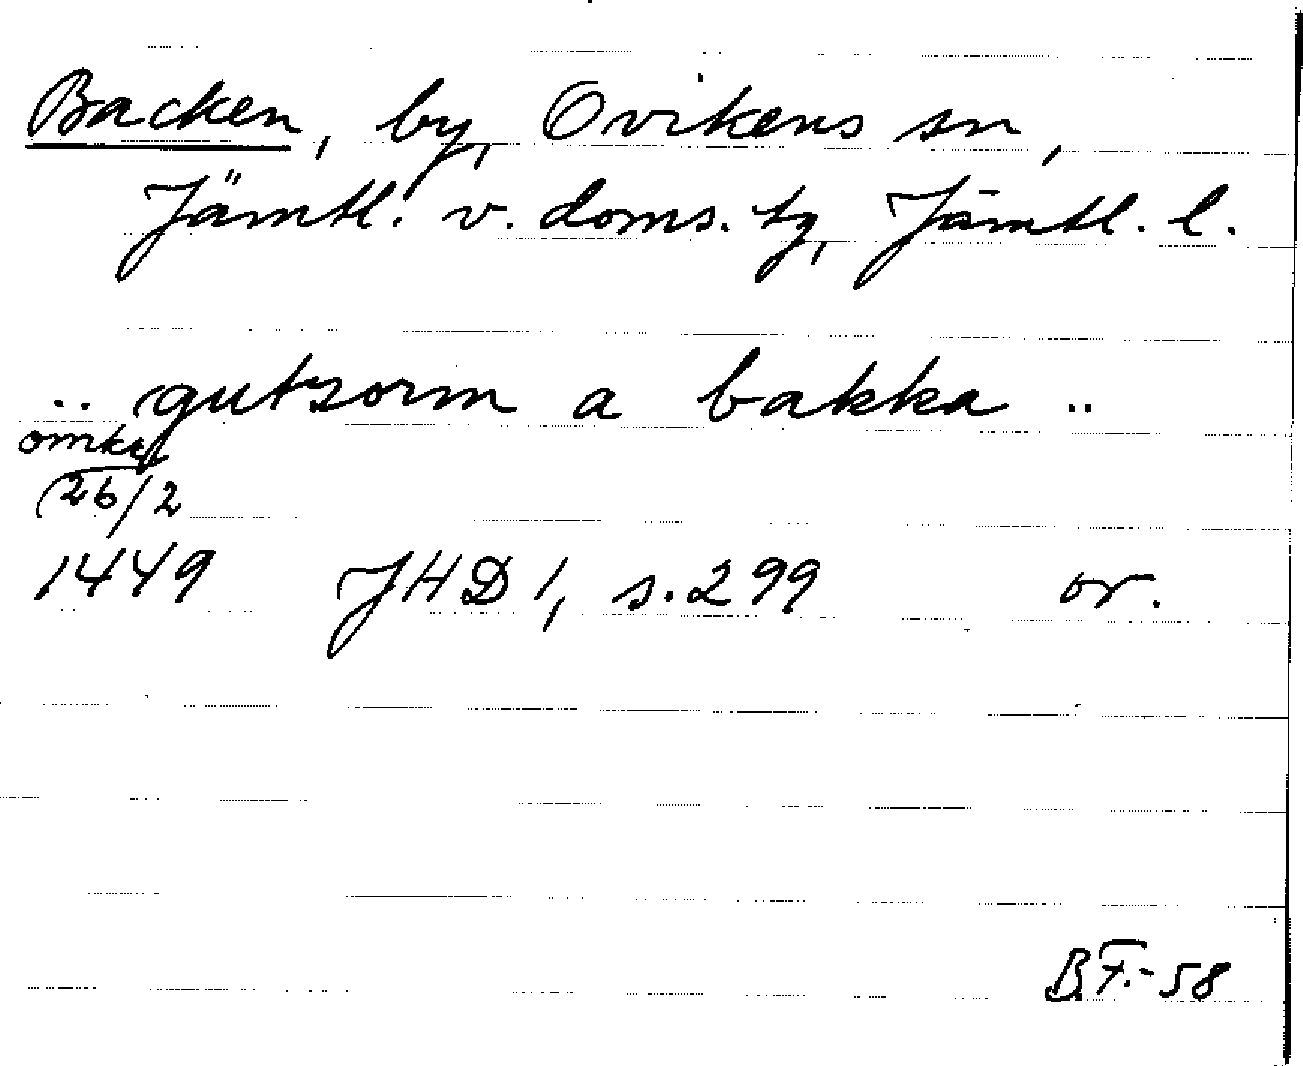 Backen, by, Ovikens sn,
Jämtl. v. doms. tg, Jämtl. l.
.. gutzorm a bakka ..
omkr
26/2
1449 JHD 1, s. 299 or.
B.F.-58